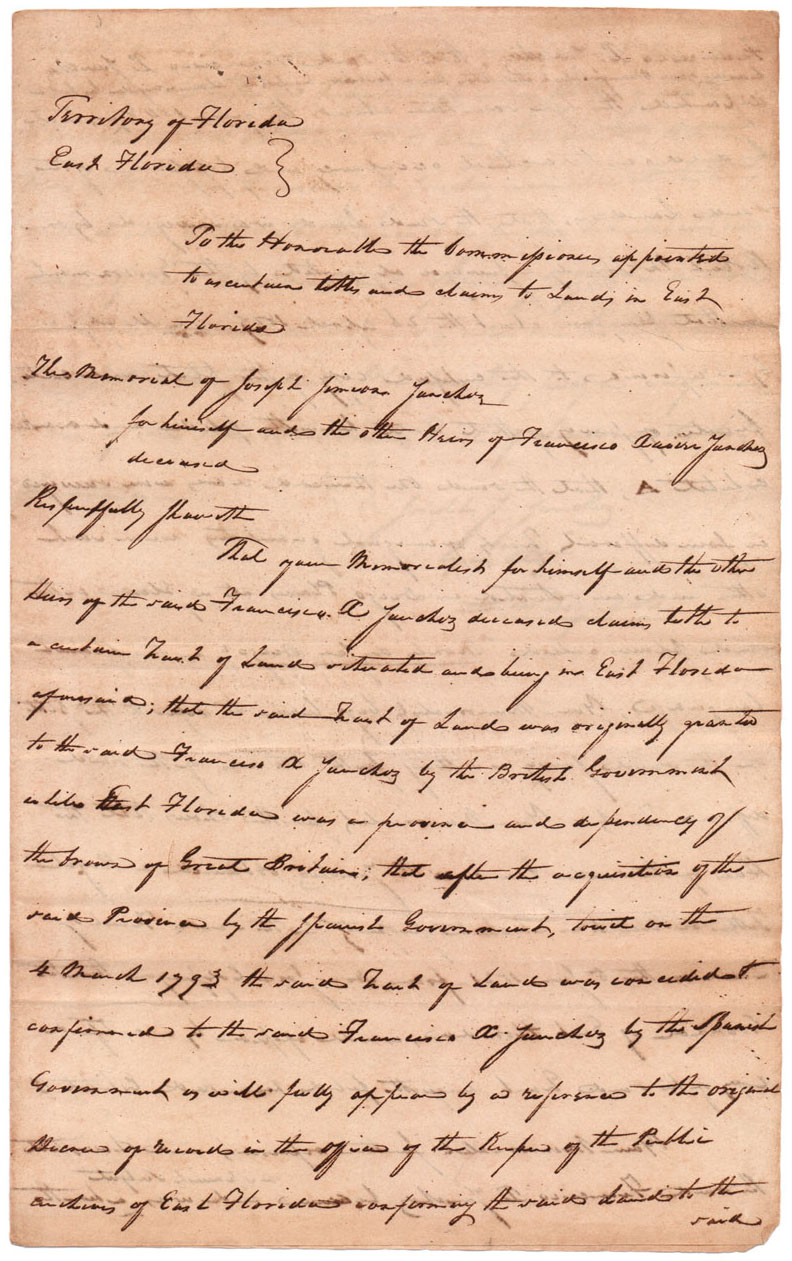 Territory of Florida
East Florida }
To the Honorable the Commissioners appointed
to ascertain titles and claims to Lands in East
Florida
The Memorial of Joseph Simeon Sanchez
for himself and the other Heirs of Francisco Xavier Sanchez
deceased
Respectfully Sheweth
That your Memorialist for himself and the other
Heirs of the said Francisco X Sanchez deceased claims title to
a certain Tract of Land situated and being in East Florida
aforesaid; that the said Tract of Land was originally granted
to the said Francisco X Sanchez by the British Government
while East Florida was a province and dependency of
the Crown of Great Britain; that after the acquisition of the
said Province by the Spanish Government, towit on the
4 March 1793 the said Tract of Land was conceded &
confirmed to the said Francisco X. Sanchez by the Spanish
Government as will fully appear by a reference to the original
Decree of record in the office of the Keeper of the Public
archives of East Florida confirming the said Land to the
said